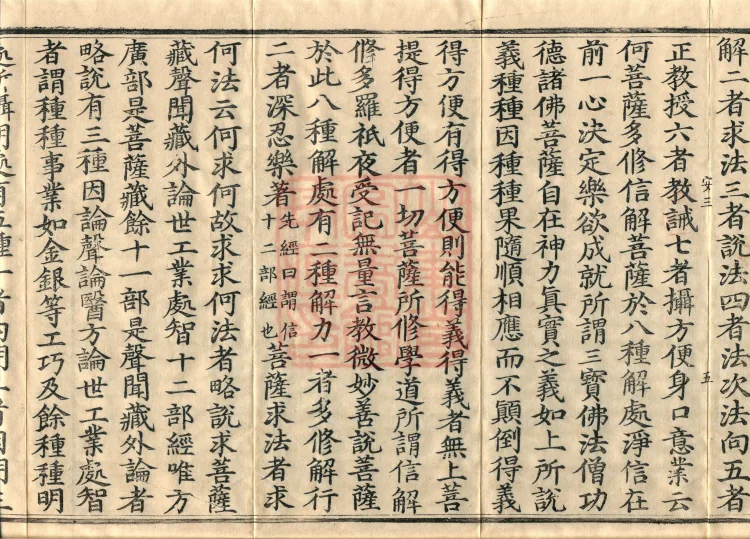 解二者求法三者說法四者法次法向五者
正教授六者教誡七者攝方便身口意業云
安三
五
何菩薩多修信解菩薩於八種解處淨信在
前一心決定樂欲成就所謂三寶佛法僧功
德諸佛菩薩自在神力眞實之義如上所說
義種種因種種果隨順相應而不顚倒得義
得方便有得方便則能得義得義者無上菩
提得方便者一切菩薩所修學道所謂信解
脩多羅祇夜受記無量言教微妙善說菩薩
於此八種解處有二種解力一者多修解行
二者深忍樂著先經曰謂信十二部經也菩薩求法者求
何法云何求何故求求何法者略說求菩薩
藏聲聞藏外論世工業處智十二部經唯方
廣部是菩薩藏餘十一部是聲聞藏外論者
略說有三種因論聲論醫方論世工業處智
者謂種種事業如金銀等工巧及餘種種明